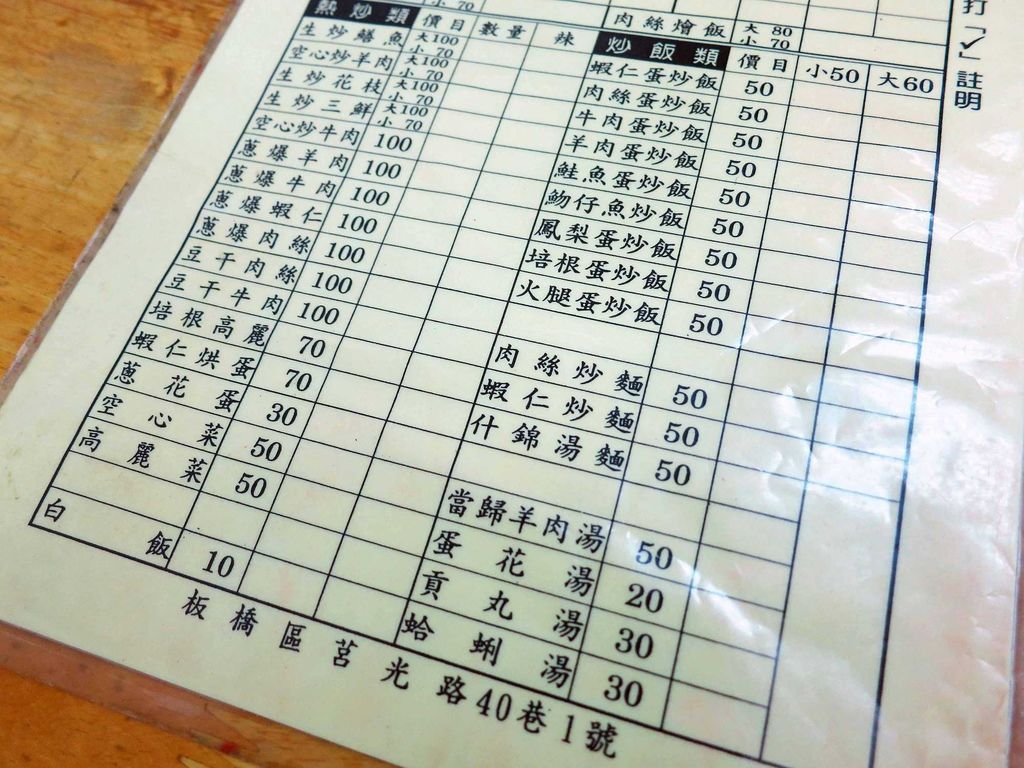 小 70
熱炒類 價目 數量 辣
生炒鱔魚 大100 小 70
空心炒羊肉 大100 小 70
生炒花枝 大100 小 70
生炒三鮮 大100 小 70
空心炒牛肉 100
蔥爆羊肉 100
蔥爆牛肉 100
蔥爆蝦仁 100
蔥爆肉絲 100
豆干肉絲 100
豆干牛肉 100
培根高麗 70
蝦仁烘蛋 70
蔥花蛋 30
空心菜 50
高麗菜 50
白飯 10
肉絲燴飯 大 80 小 70
炒飯類 價目 小50 大60
蝦仁蛋炒飯 50
肉絲蛋炒飯 50
牛肉蛋炒飯 50
羊肉蛋炒飯 50
鮭魚蛋炒飯 50
魩仔魚炒飯 50
鳳梨蛋炒飯 50
培根蛋炒飯 50
火腿蛋炒飯 50
肉絲炒麵 50
蝦仁炒麵 50
什錦湯麵 50
當歸羊肉湯 50
蛋花湯 20
貢丸湯 30
蛤蜊湯 30
打「✓」註明
板橋區莒光路40巷1號